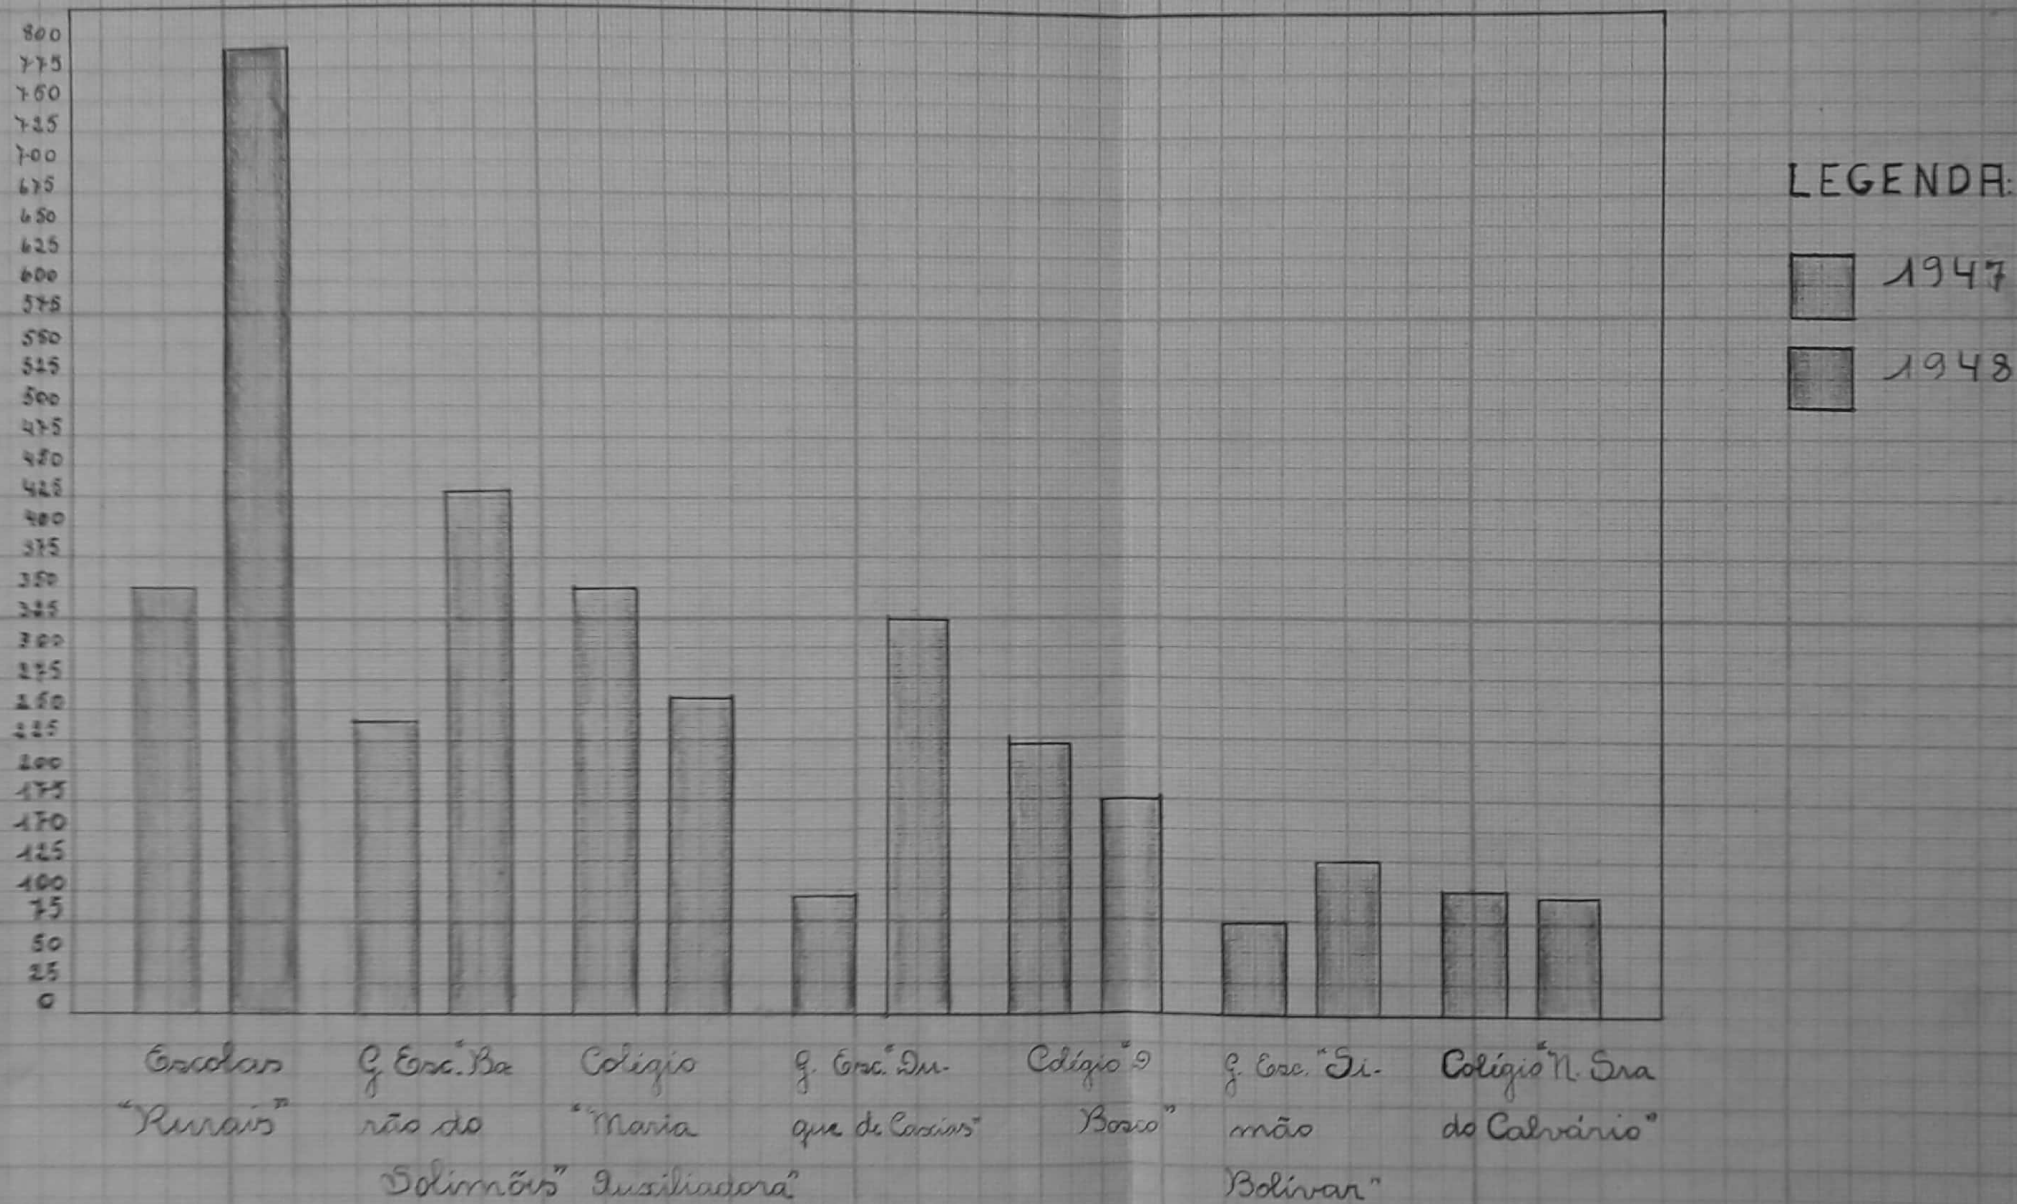 800
775
760
725
700
675
650
625
600
575
550
525
500
475
450
425
400
375
350
325
300
275
250
225
200
175
170
125
100
75
50
25
0
LEGENDA:
1947
1948
Escolas
"Rurais"
G. Esc. "Ba
rão do
Solimões"
Colégio
"Maria
Auxiliadora"
G. Esc. "Du-
que de Caxias"
Colégio "D
Bosco"
G. Esc. "Si-
mão
Bolívar"
Colégio "N. Sra
do Calvário"